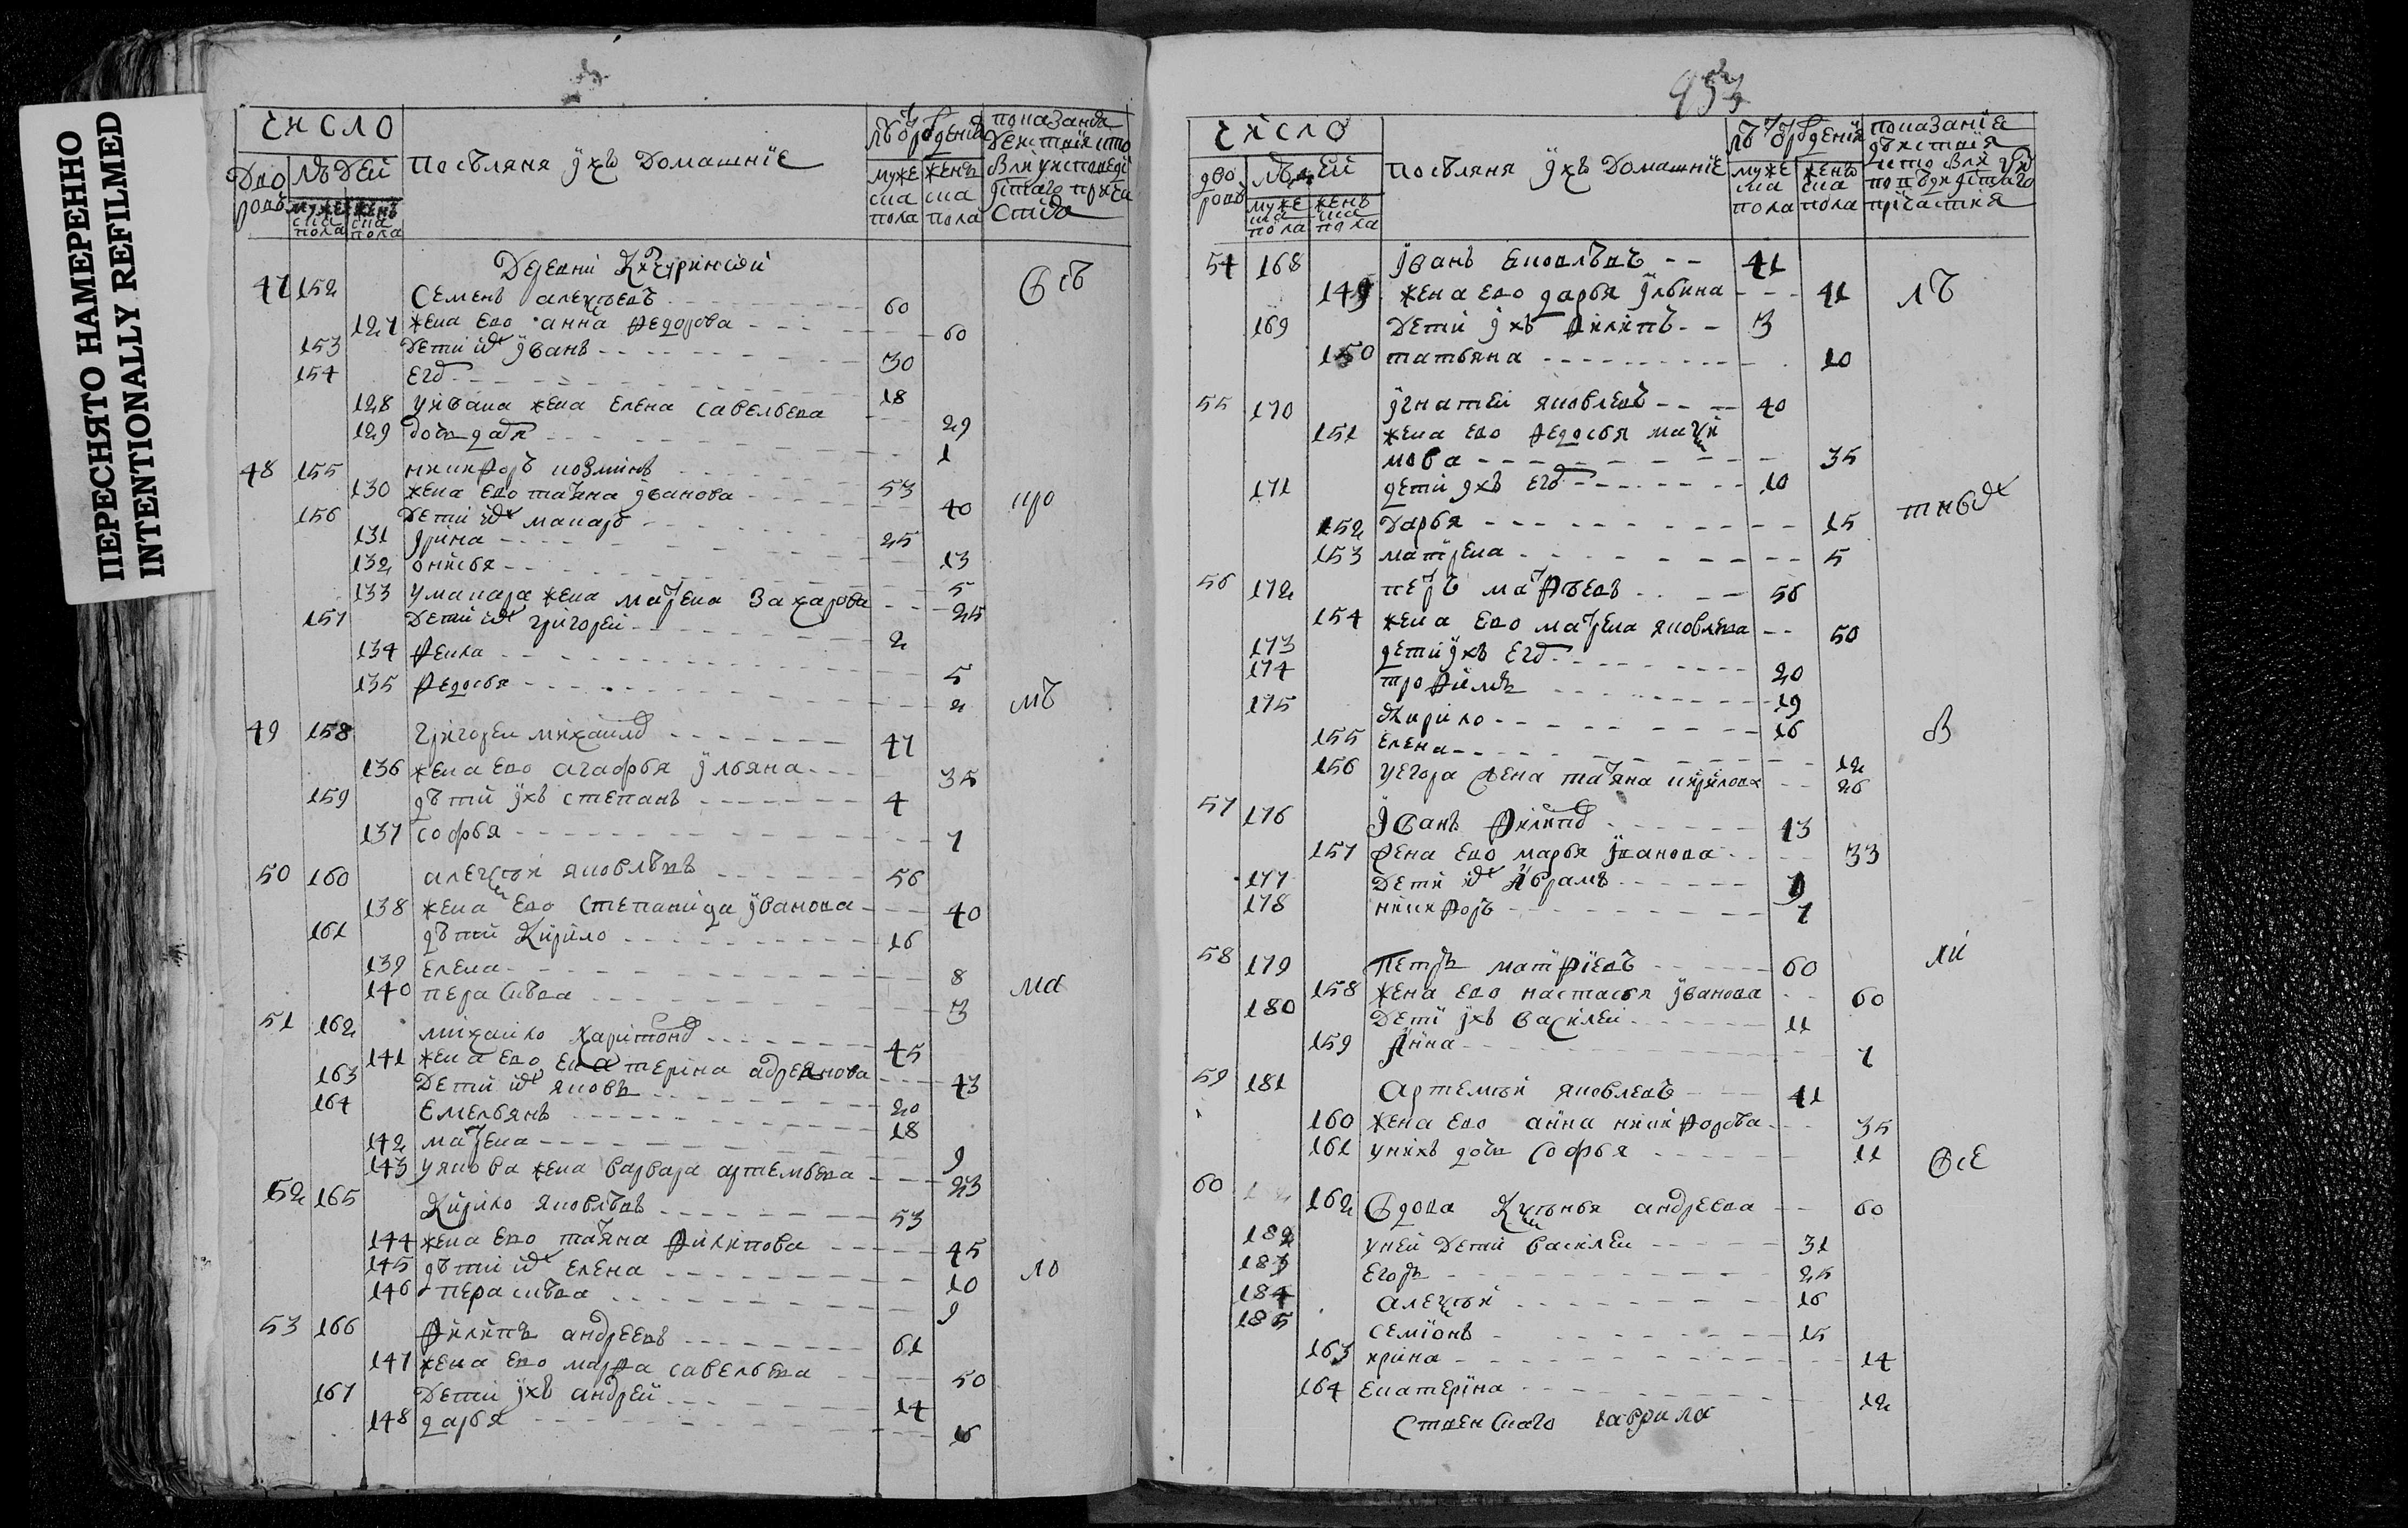 ПЕРЕСНЯТО НАМЕРЕННО
INTENTIONALLY REFILMED
число
Дво ровъ
людей
муже ска пола
женъ ска пола
Посѣляня ихъ Домашніе
муже ска пола
женъ ска пола
47 152 Семенъ алексѣевъ 60
127 жена ево анна Федорова 60
153 Дети ихъ Иванъ 30
154 Егоръ 18
128 уивана жена Елена савельева 29
129 дочь дарья 1
48 155 никифоръ козминъ 53
130 жена ево татьяна иванова 40
156 Дети ихъ макаръ 25
131 ирина 13
132 онисья 5
133 умакара жена матрена Захарова 25
157 Дети ихъ григорей 2
134 Фекла 5
135 Федосья 2
49 158 Григореи михаиловъ 47
136 жена ево агафья ульяна 35
159 дѣти ихъ степанъ 4
137 софья 7
50 160 алексѣи яковлѣвъ 56
138 жена ево степанида иванова 40
161 дѣти Кирило 16
139 елена 8
140 пераскѣва 3
51 162 михаило харитоновъ 45
141 жена ево екатерина адреянова 43
163 Дети ихъ яковъ 20
164 Емельянъ 18
142 матрена 9
143 уякова жена варвара артемьева 23
52 165 Кирило яковлѣвъ 53
144 жена ево татьяна Филипова 45
145 дѣти ихъ елена 10
146 пераскѣва 9
53 166 Филипъ андреевъ 61
147 жена ево марфа савельева 50
167 Дети ихъ андрей 14
148 дарья 16
953
число
дво ровъ
людей
муже ска пола
женъ ска пола
Посѣляня ихъ Домашніе
муже ска пола
женъ ска пола
54 168 Иванъ яковлѣвъ 41
149 жена ево дарья ильина 41
169 Дети ихъ Филипъ 3
150 татьяна 10
55 170 игнатеи яковлевъ 40
151 жена ево федосья макси
мова 35
171 дети ихъ егоръ 10
152 Дарья 15
153 матрена 5
56 172 петръ матфѣевъ 56
154 жена ево матрена яковлева 50
173 дети ихъ егоръ 20
174 трофимъ 19
175 кирило 16
155 елена 12
156 уегора жена татьяна кирилова 26
57 176 Иванъ Филиповъ 43
157 жена ево марья иванова 33
177 Дети ихъ Аврамъ 9
178 никифоръ 7
58 179 Петръ матфіевъ 60
158 жена ево настасья иванова 60
180 Дети ихъ василеи 11
159 Анна 7
59 181 Артемѣи яковлевъ 41
160 жена ево анна никифорова 35
161 унихъ дочь софья 11
60 162 Вдова Ксѣнья андреева 60
182 уней Дети василеи 31
183 Егоръ 25
184 алексѣи 16
185 семіонъ 15
163 ирина 14
164 екатерина 12